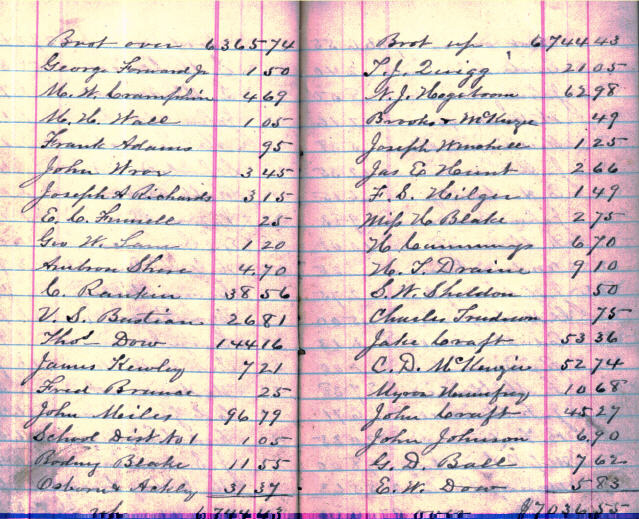 Brot over 6365 74
George Forward Jr 1 50
M. W. Crampkin 4 69
M. H. Wall 1 05
Frank Adams 95
John Wror 3 45
Joseph A Richards 3 15
E. C. 25
Geo W. 1 20
Ambron Shire 4.70
C. Rankin 38 56
V. S. Bastian 26 81
Thos Dow 144 16
James Kewley 7 21
Fred 25
John Meiles 96 79
School Dist No 1 1 05
Rodney Blake 11 55
Osborn & Ashley 31 37
up 6744 43
Brot up 6744 43
T. J. Quigg 21 05
N. J. Hogeboom 62 98
Brooks & McKenzie 49
Joseph 1 25
Jas E Hunt 2 66
F. S. Hilger 1 49
Miss H Blake 2 75
H Cummings 6 70
H. T. Draine 9 10
S. W. Sheldon 50
Charles 75
Jake Craft 53 36
C. D. McKenzie 52 74
Myron Humfrey 10 68
John Craft 45 27
John Johnson 6.90
G. D. Ball 7 62
E. W. Dow 5 83
over 7036 55